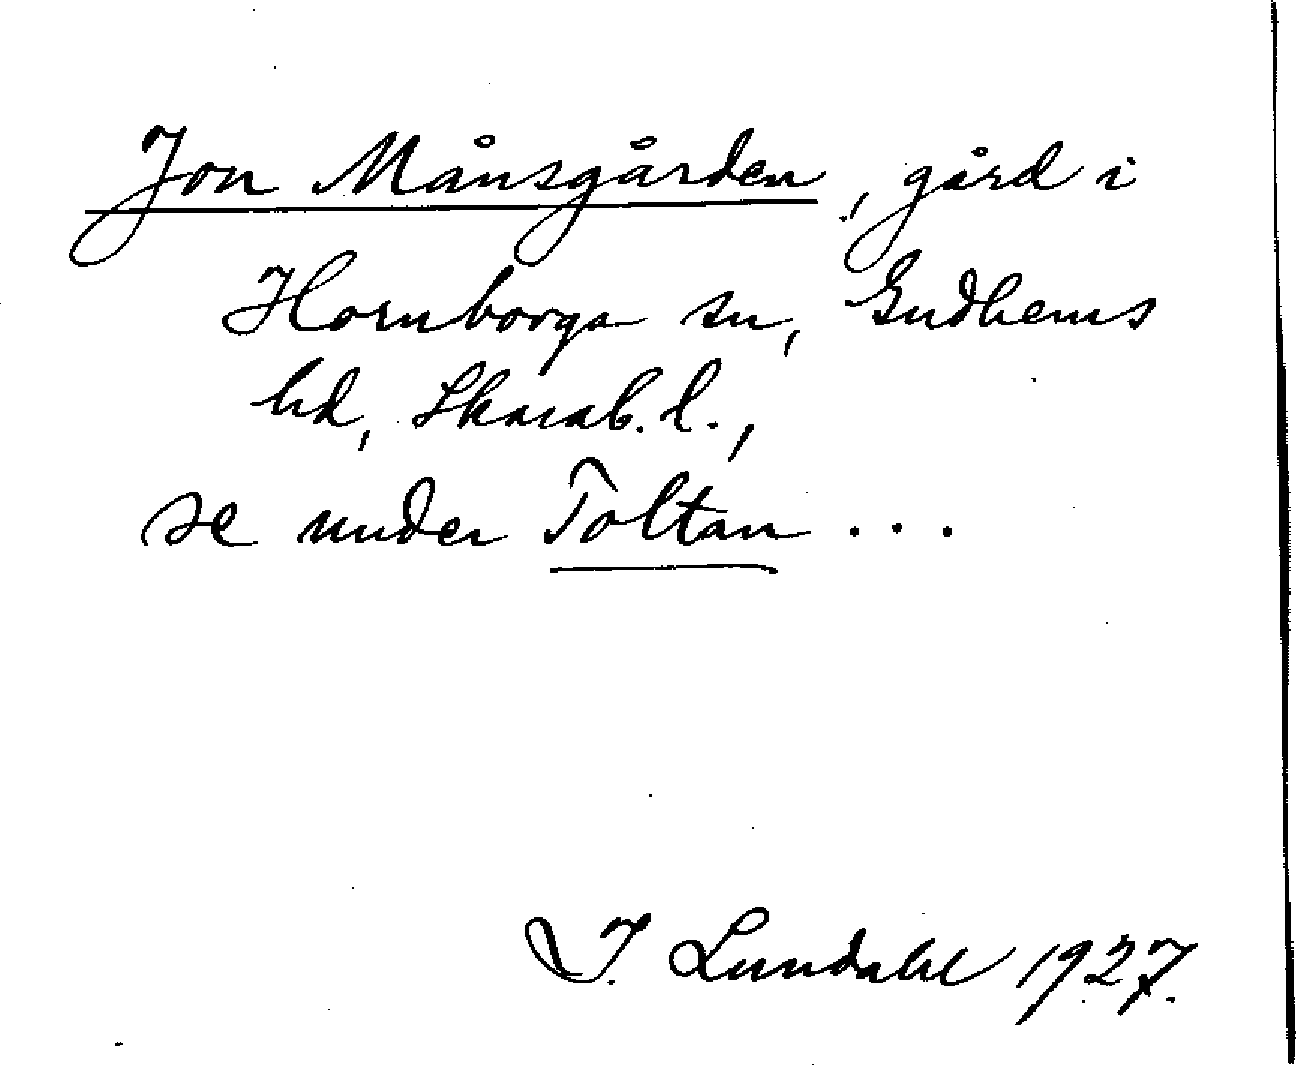 Jon Månsgården, gård i
Hornborga sn, Gudhems
hd, Skarab. l.,
se under Toltan...
I. Lundahl 1927.